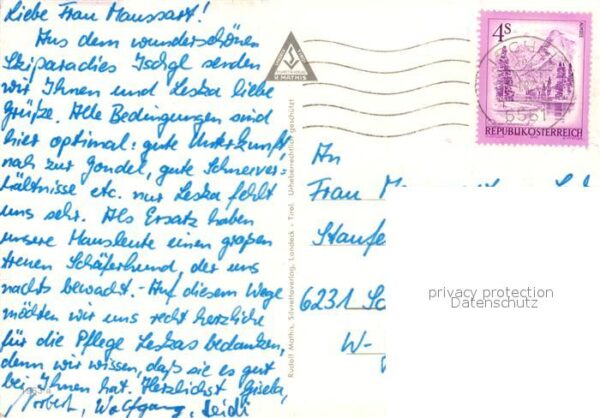 Liebe Frau Maussart!
Aus dem wunderschönen
Skiparadies Ischgl senden
wir Ihnen und Leska liebe
Grüße. Alle Bedingungen sind
hier optimal: gute Unterkunft
nah zur Gondel, gute Schneever-
hältnisse etc. nur Leska fehlt
uns sehr. Als Ersatz haben
unsere Hausleute einen großen
treuen Schäferhund, der uns
nachts bewacht. - Auf diesem Wege
möchten wir uns recht herzliche
für die Pflege Leskas bedanken,
denn wir wissen, daß sie es gut
bei Ihnen hat. Herzlichst Gisela,
Norbert, Wolfgang, Heidi
R. MATHIS
Rudolf Mathis, Silvrettaverlag, Landeck - Tirol. Urheberrechtlich geschützt
4S
REPUBLIK ÖSTERREICH
6561
An
Frau
Staufe
6231 Sc
W-
privacy protection
Datenschutz